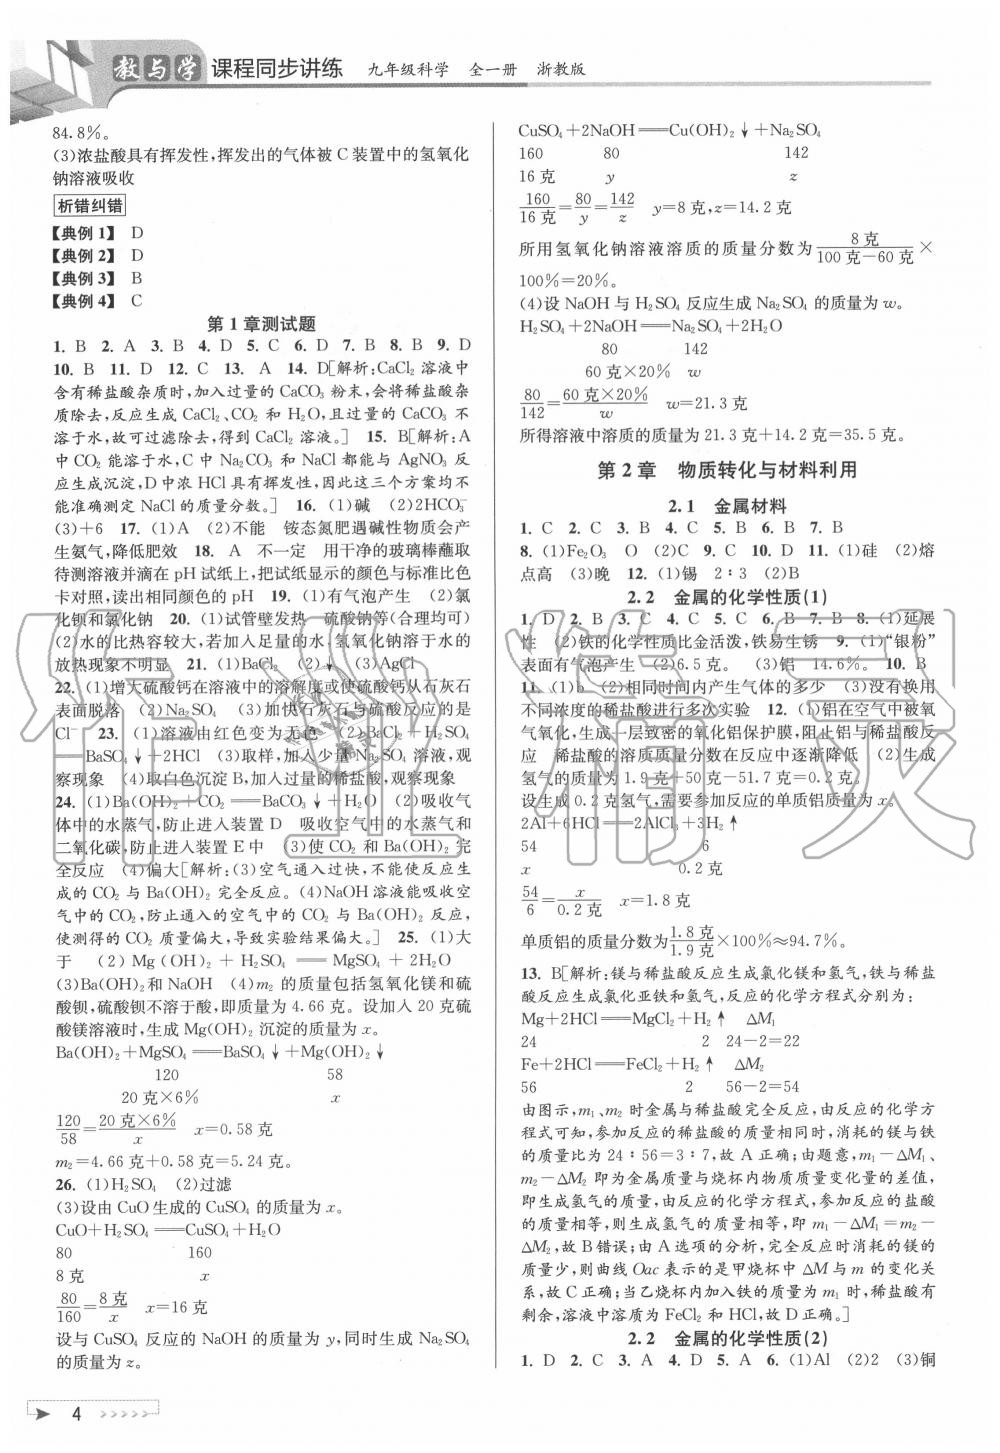 教与学 课程同步讲练 九年级科学 全一册 浙教版
84.8%。
(3)浓盐酸具有挥发性,挥发出的气体被C装置中的氢氧化
钠溶液吸收
析错纠错
【典例1】 D
【典例2】 D
【典例3】 B
【典例4】 C
第1章测试题
1. B 2. A 3. B 4. D 5. C 6. D 7. B 8. B 9. D
10. B 11. D 12. C 13. A 14. D[解析:CaCl₂溶液中
含有稀盐酸杂质时,加入过量的CaCO₃粉末,会将稀盐酸杂
质除去,反应生成CaCl₂、CO₂和H₂O,且过量的CaCO₃不
溶于水,故可过滤除去,得到CaCl₂溶液。] 15. B[解析:A
中CO₂能溶于水,C中Na₂CO₃和NaCl都能与AgNO₃反
应生成沉淀,D中浓HCl具有挥发性,因此这三个方案均不
能准确测定NaCl的质量分数。] 16. (1)碱 (2)2HCO₃⁻
(3)+6 17. (1)A (2)不能 铵态氮肥遇碱性物质会产
生氨气,降低肥效 18. A 不一定 用干净的玻璃棒蘸取
待测溶液并滴在pH试纸上,把试纸显示的颜色与标准比色
卡对照,读出相同颜色的pH 19. (1)有气泡产生 (2)氯
化钡和氯化钠 20. (1)试管壁发热 硫酸钠等(合理均可)
(2)水的比热容较大,若加入足量的水,氢氧化钠溶于水的
放热现象不明显 21. (1)BaCl₂ (2)↓ (3)AgCl
22. (1)增大硫酸钙在溶液中的溶解度或使硫酸钙从石灰石
表面脱落 (2)Na₂SO₄ (3)加快石灰石与硫酸反应的是
Cl⁻ 23. (1)溶液由红色变为无色 (2)BaCl₂+H₂SO₄
══BaSO₄↓+2HCl (3)取样,加入少量Na₂SO₄溶液,观
察现象 (4)取白色沉淀B,加入过量的稀盐酸,观察现象
24. (1)Ba(OH)₂+CO₂══BaCO₃↓+H₂O (2)吸收气
体中的水蒸气,防止进入装置D 吸收空气中的水蒸气和
二氧化碳,防止进入装置E中 (3)使CO₂和Ba(OH)₂完
全反应 (4)偏大[解析:(3)空气通入过快,不能使反应生
成的CO₂与Ba(OH)₂完全反应。(4)NaOH溶液能吸收空
气中的CO₂,防止通入的空气中的CO₂与Ba(OH)₂反应,
使测得的CO₂质量偏大,导致实验结果偏大。] 25. (1)大
于 (2)Mg(OH)₂+H₂SO₄══MgSO₄+2H₂O
(3)Ba(OH)₂和NaOH (4)m₂的质量包括氢氧化镁和硫
酸钡,硫酸钡不溶于酸,即质量为4.66克。设加入20克硫
酸镁溶液时,生成Mg(OH)₂沉淀的质量为x。
Ba(OH)₂+MgSO₄══BaSO₄↓+Mg(OH)₂↓
120 58
20克×6% x
120/58=20克×6%/x x=0.58克
m₂=4.66克+0.58克=5.24克
26. (1)H₂SO₄ (2)过滤
(3)设由CuO生成的CuSO₄的质量为x。
CuO+H₂SO₄══CuSO₄+H₂O
80 160
8克 x
80/160=8克/x x=16克
设与CuSO₄反应的NaOH的质量为y,同时生成Na₂SO₄
的质量为z。
CuSO₄+2NaOH══Cu(OH)₂↓+Na₂SO₄
160 80 142
16克 y z
160/16克=80/y=142/z y=8克,z=14.2克
所用氢氧化钠溶液溶质的质量分数为8克/(100克-60克)×
100%=20%。
(4)设NaOH与H₂SO₄反应生成Na₂SO₄的质量为w。
H₂SO₄+2NaOH══Na₂SO₄+2H₂O
80 142
60克×20% w
80/142=60克×20%/w w=21.3克
所得溶液中溶质的质量为21.3克+14.2克=35.5克。
第2章 物质转化与材料利用
2.1 金属材料
1. C 2. C 3. B 4. C 5. B 6. B 7. B
8. (1)Fe₂O₃ O (2)C 9. C 10. D 11. (1)硅 (2)熔
点高 (3)晚 12. (1)锡 2∶3 (2)B
2.2 金属的化学性质(1)
1. D 2. B 3. B 4. C 5. C 6. B 7. B 8. (1)延展
性 (2)铁的化学性质比金活泼,铁易生锈 9. (1)“银粉”
表面有气泡产生 (2)6.5克。 (3)铝 14.6%。 10. B
11. (1)b (2)相同时间内产生气体的多少 (3)没有换用
不同浓度的稀盐酸进行多次实验 12. (1)铝在空气中被氧
气氧化,生成一层致密的氧化铝保护膜,阻止铝与稀盐酸反
应 稀盐酸的溶质质量分数在反应中逐渐降低 (2)生成
氢气的质量为1.9克+50克-51.7克=0.2克。
设生成0.2克氢气,需要参加反应的单质铝质量为x。
2Al+6HCl══2AlCl₃+3H₂↑
54 6
x 0.2克
54/6=x/0.2克 x=1.8克
单质铝的质量分数为1.8克/1.9克×100%≈94.7%。
13. B[解析:镁与稀盐酸反应生成氯化镁和氢气,铁与稀盐
酸反应生成氯化亚铁和氢气,反应的化学方程式分别为:
Mg+2HCl══MgCl₂+H₂↑ ΔM₁
24 2 24-2=22
Fe+2HCl══FeCl₂+H₂↑ ΔM₂
56 2 56-2=54
由图示,m₁、m₂时金属与稀盐酸完全反应,由反应的化学方
程式可知,参加反应的稀盐酸的质量相同时,消耗的镁与铁
的质量比为24∶56=3∶7,故A正确;由题意,m₁-ΔM₁、
m₂-ΔM₂即为金属质量与烧杯内物质质量变化量的差值,
即生成氢气的质量,由反应的化学方程式,参加反应的盐酸
的质量相等,则生成氢气的质量相等,即m₁-ΔM₁=m₂-
ΔM₂,故B错误;由A选项的分析,完全反应时消耗的镁的
质量少,则曲线Oac表示的是甲烧杯中ΔM与m的变化关
系,故C正确;当乙烧杯内加入铁的质量为m₁时,稀盐酸有
剩余,溶液中溶质为FeCl₂和HCl,故D正确。]
2.2 金属的化学性质(2)
1. D 2. C 3. A 4. D 5. A 6. (1)Al (2)2 (3)铜
4
作业精灵